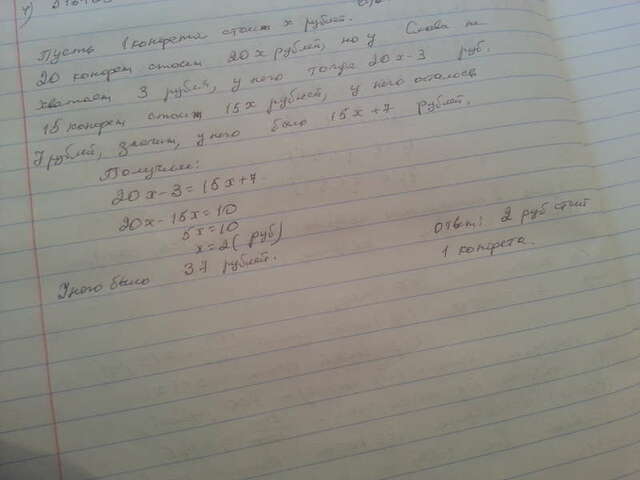 4)
Пусть 1 конфета стоит x рублей.
20 конфет стоит 20x рублей, но у Славы не
хватает 3 рубля, у него тогда 20x-3 руб.
15 конфет стоит 15x рублей, у него осталось
7 рублей, значит, у него было 15x+7 рублей.
Получим:
20x-3=15x+7
20x-15x=10
5x=10
x=2( руб)
У него было 37 рублей.
Ответ: 2 руб стоит
1 конфета.